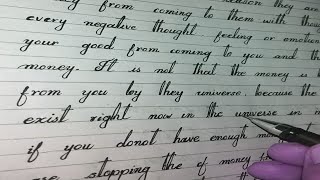 from coming to them with though
every negative thought feeling or emotion
your good from coming to you and tha
money. It is not that the money is b
from you by they universe, because the
exist right now in the universe in
if you donot have enough mon
are stopping the of money